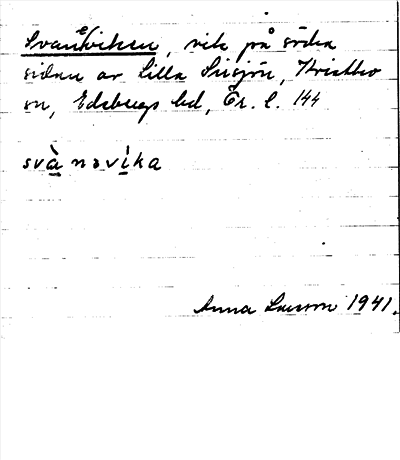 Svaneviken, vik på södra
sidan av Lilla Svisjön, Kvistbro
sn, Edsbergs hd, Ör. l. 144
svà nəvíka
Anna Larsson 1941.